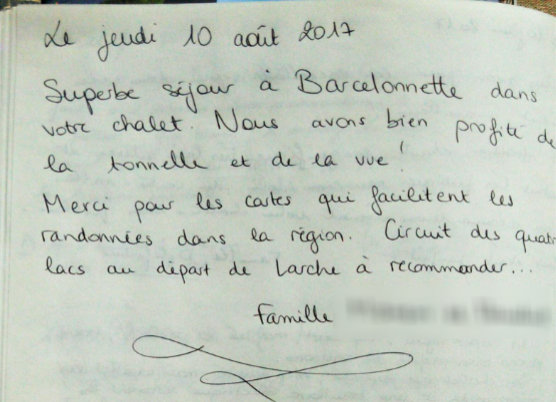 Le jeudi 10 août 2017
Superbe séjour à Barcelonnette dans
votre chalet. Nous avons bien profité de
la tonnelle et de la vue !
Merci pour les cartes qui facilitent les
randonnées dans la région. Circuit des quatr
lacs au départ de Larche à recommander...
Famille